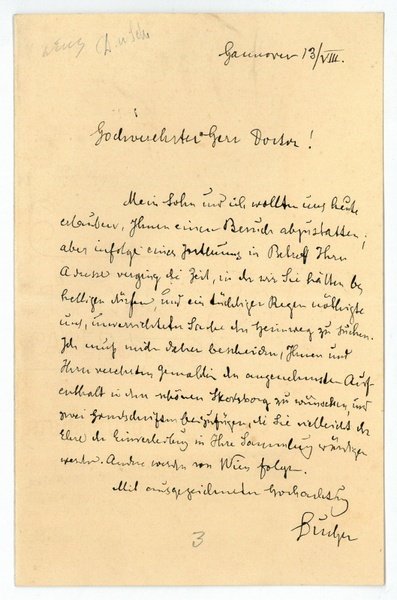 Hannover 13/VIII.
Hochverehrtester Herr Doctor!
Mein Sohn und ich wollten uns heute
erlauben, Ihnen einen Besuch abzustatten;
aber infolge eines Irrthums in Betreff Ihrer
Adresse verging die Zeit, in der wir Sie hätten be-
helligen dürfen, und ein tüchtiger Regen nöthigte
uns, unverrichteter Sache den Heimweg zu suchen.
Ich muß mich daher bescheiden, Ihnen und
Ihrer verehrten Gemahlin den angenehmsten Auf-
enthalt in dem schönen Skodsborg zu wünschen, und
zwei Handschriften beizufügen, die Sie vielleicht der
Ehre der Einverleibung in Ihre Sammlung würdigen
werden. Andre werden von Wien folgen.
Mit ausgezeichneter Hochachtung
Bucher
3